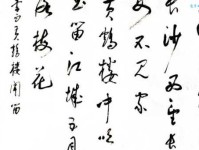 长沙西望长
安不见家
黄鹤楼中吹
玉笛江城五月
落梅花
李白黄鹤楼闻笛